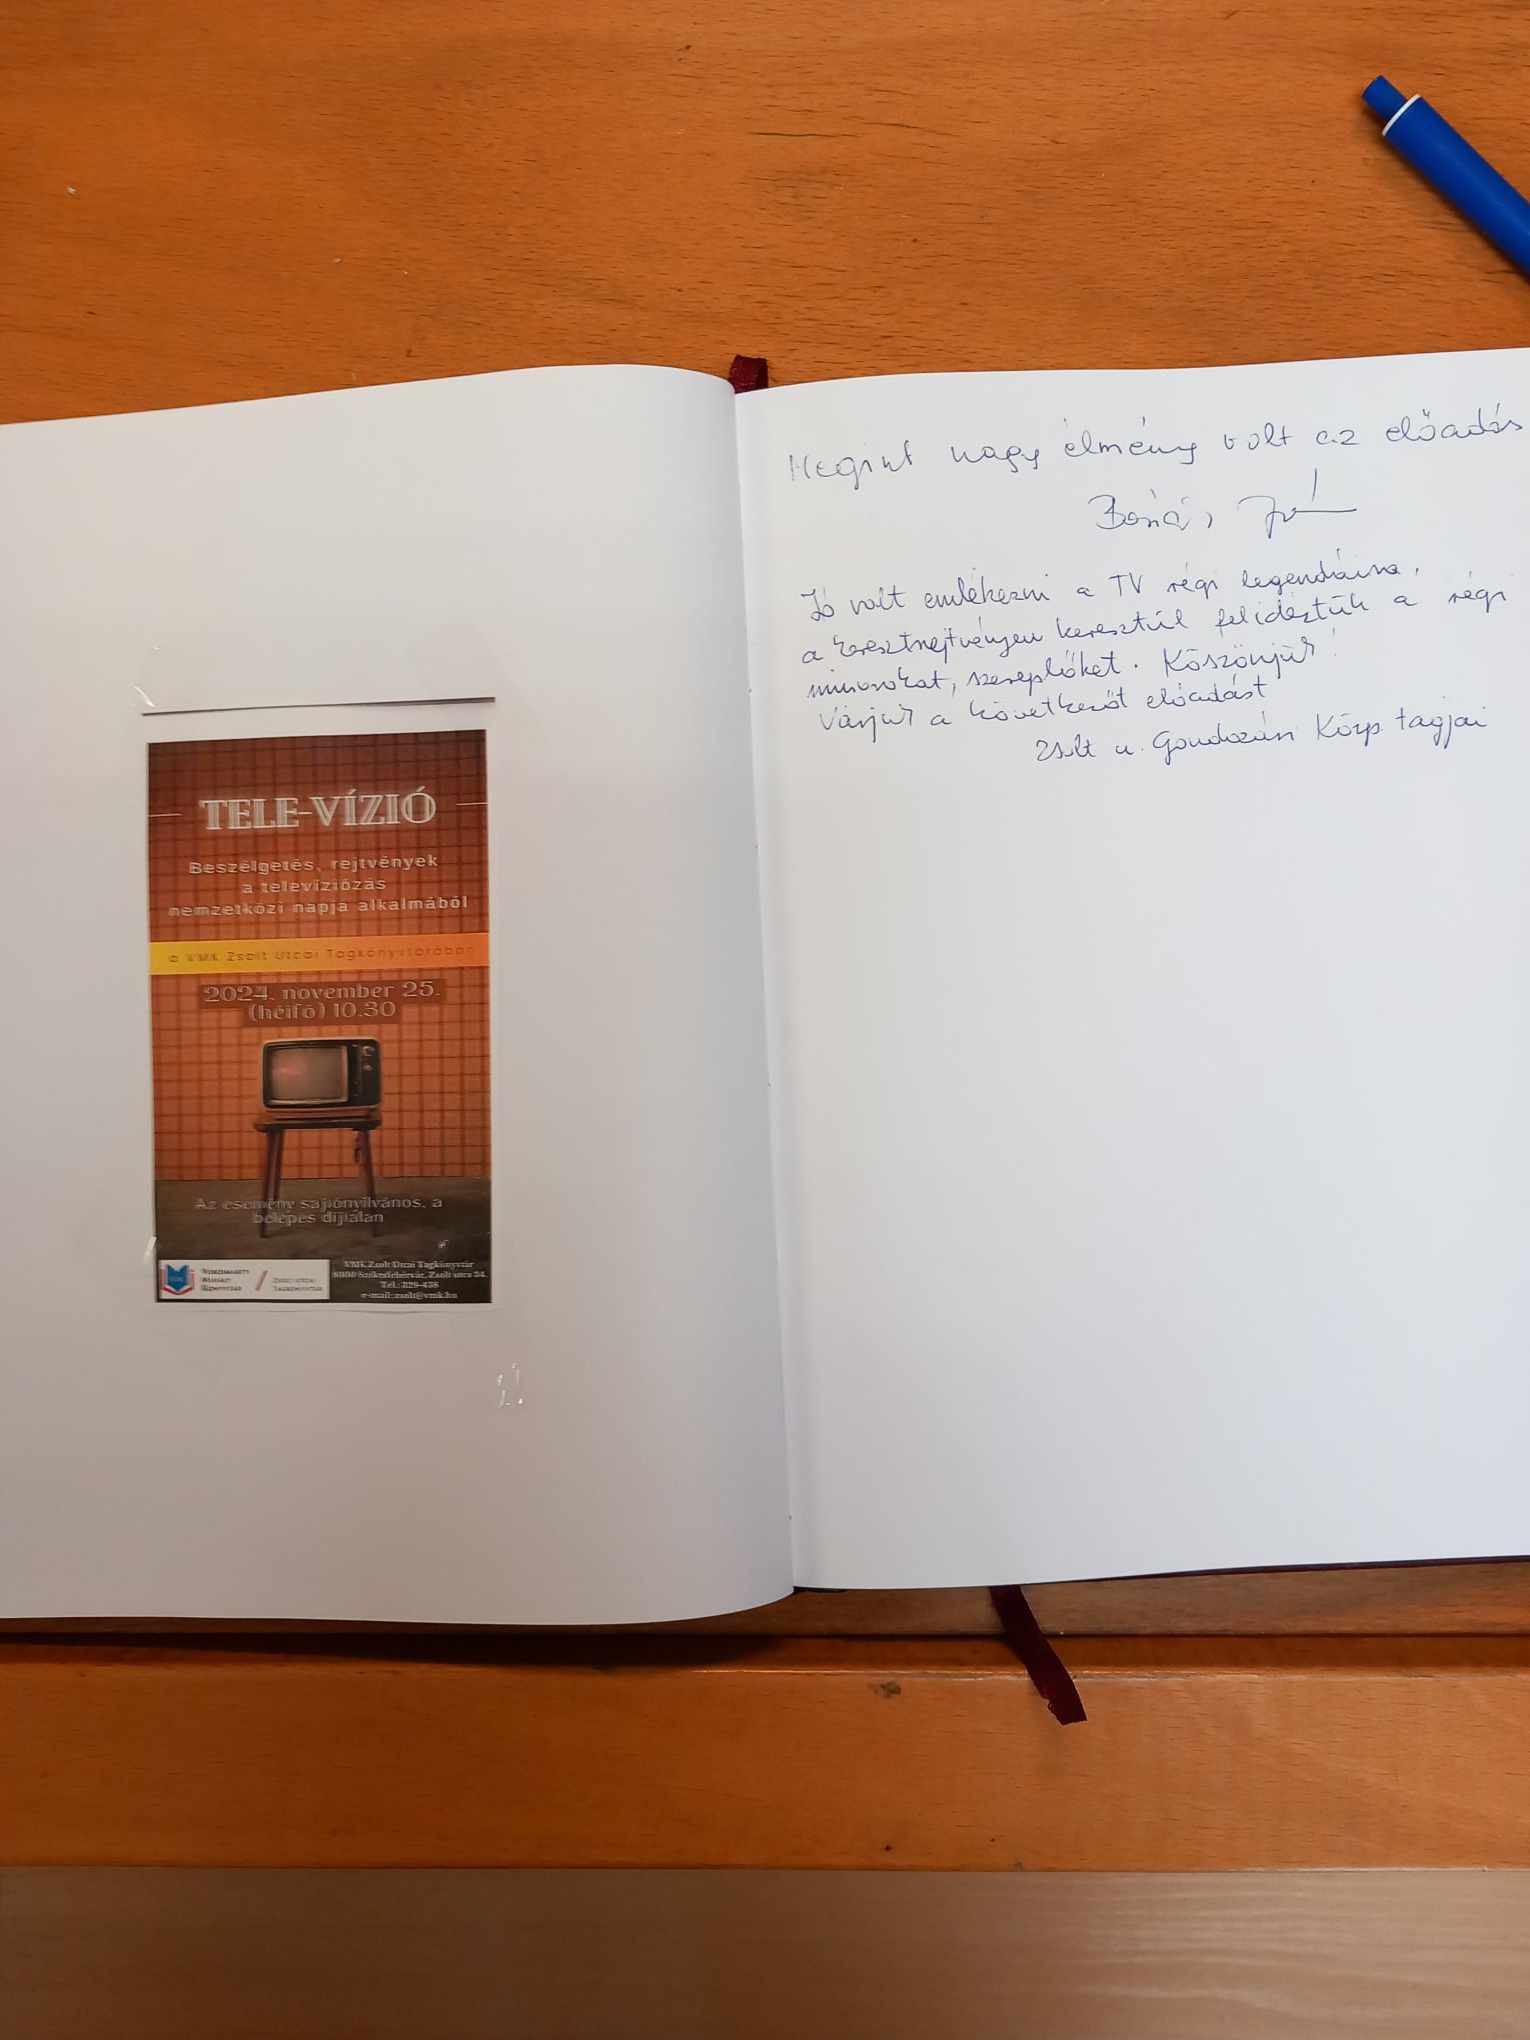 TELE-VÍZIÓ
Beszélgetés, rejtvények
a televíziózás
nemzetközi napja alkalmából
a VMK Zsolt Utcai Tagkönyvtárában
2024. november 25.
(hétfő) 10.30
Az esemény sajtónyilvános, a
belépés díjtalan
VÖRÖSMARTY
MIHÁLY
KÖNYVTÁR
ZSOLT UTCAI
TAGKÖNYVTÁR
VMK Zsolt Utcai Tagkönyvtár
8000 Székesfehérvár, Zsolt utca 34.
Tel.: 329-438
e-mail: zsolt@vmk.hu
Megint nagy élmény volt az előadás
Jó volt emlékezni a TV régi legendáira,
a keresztrejtvényen keresztül felidéztük a régi
műsorokat, szereplőket. Köszönjük!
Várjuk a következőt előadást
Zsolt u. Gondozási Közp. tagjai